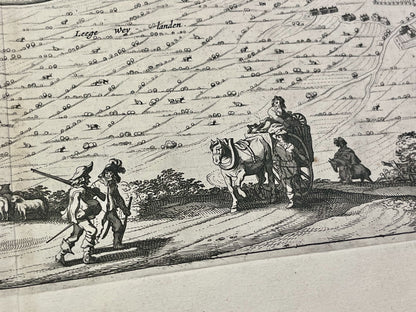 Leege Wey landen